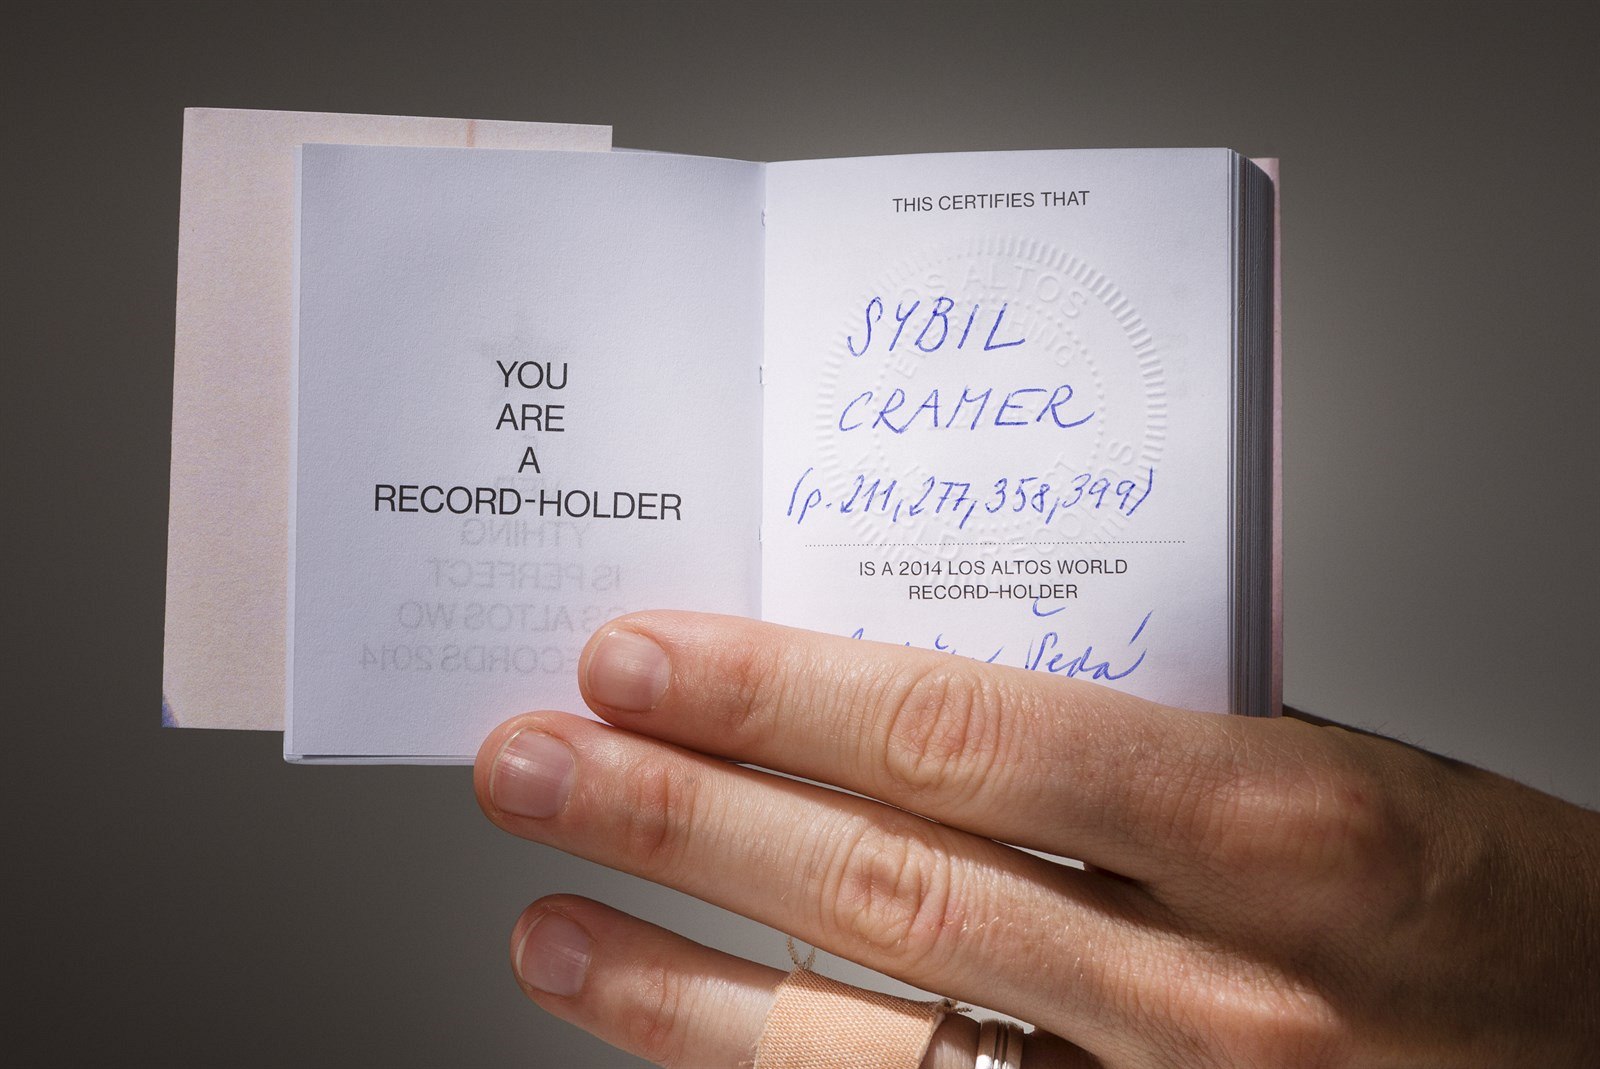 YOU
ARE
A
RECORD-HOLDER
THIS CERTIFIES THAT
LOS ALTOS
SYBIL
CRAMER
(p. 211, 277, 358, 399)
IS A 2014 LOS ALTOS WORLD
RECORD–HOLDER
Šedá